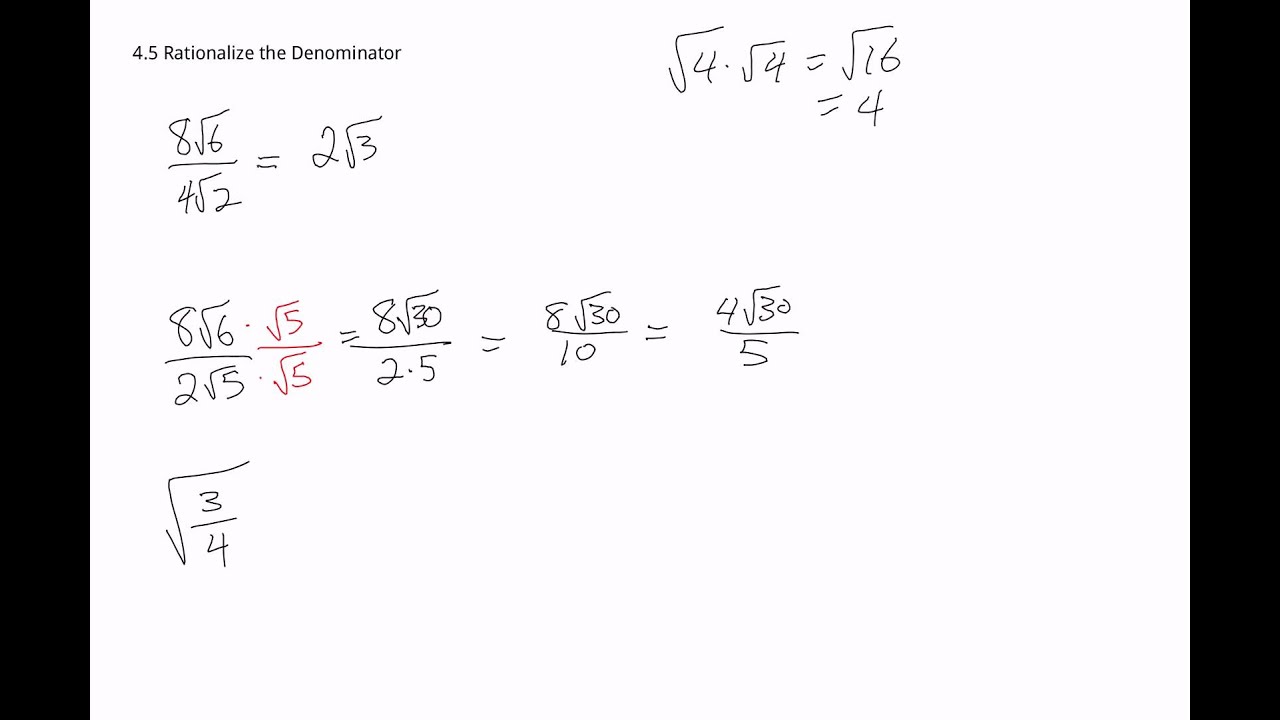 4.5 Rationalize the Denominator
√4 · √4 = √16
= 4
8√6 / 4√2 = 2√3
8√6 · √5 / 2√5 · √5 = 8√30 / 2·5 = 8√30 / 10 = 4√30 / 5
√(3/4)